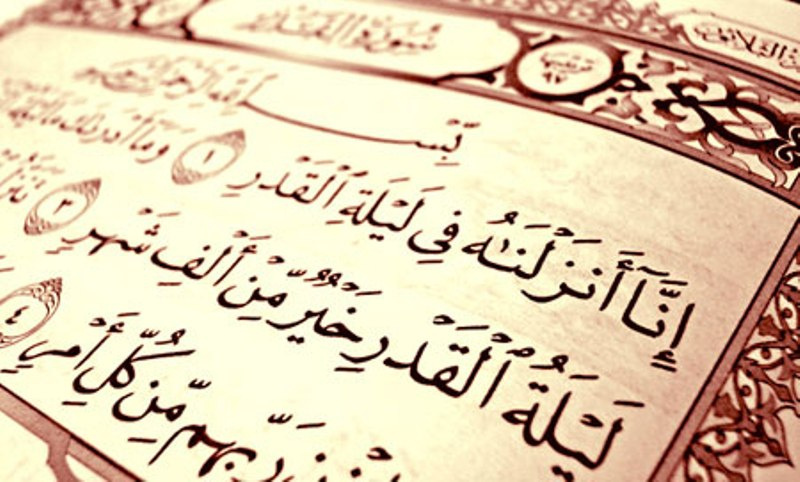 سُورَةُ القَدْرِ
بِسْمِ ٱللَّهِ ٱلرَّحْمَٰنِ ٱلرَّحِيمِ
إِنَّآ أَنزَلْنَٰهُ فِى لَيْلَةِ ٱلْقَدْرِ ١ وَمَآ أَدْرَىٰكَ مَا لَيْلَةُ
لَيْلَةُ ٱلْقَدْرِ خَيْرٌ مِّنْ أَلْفِ شَهْرٍ ٣
رَبِّهِم مِّن كُلِّ أَمْرٍ ٤